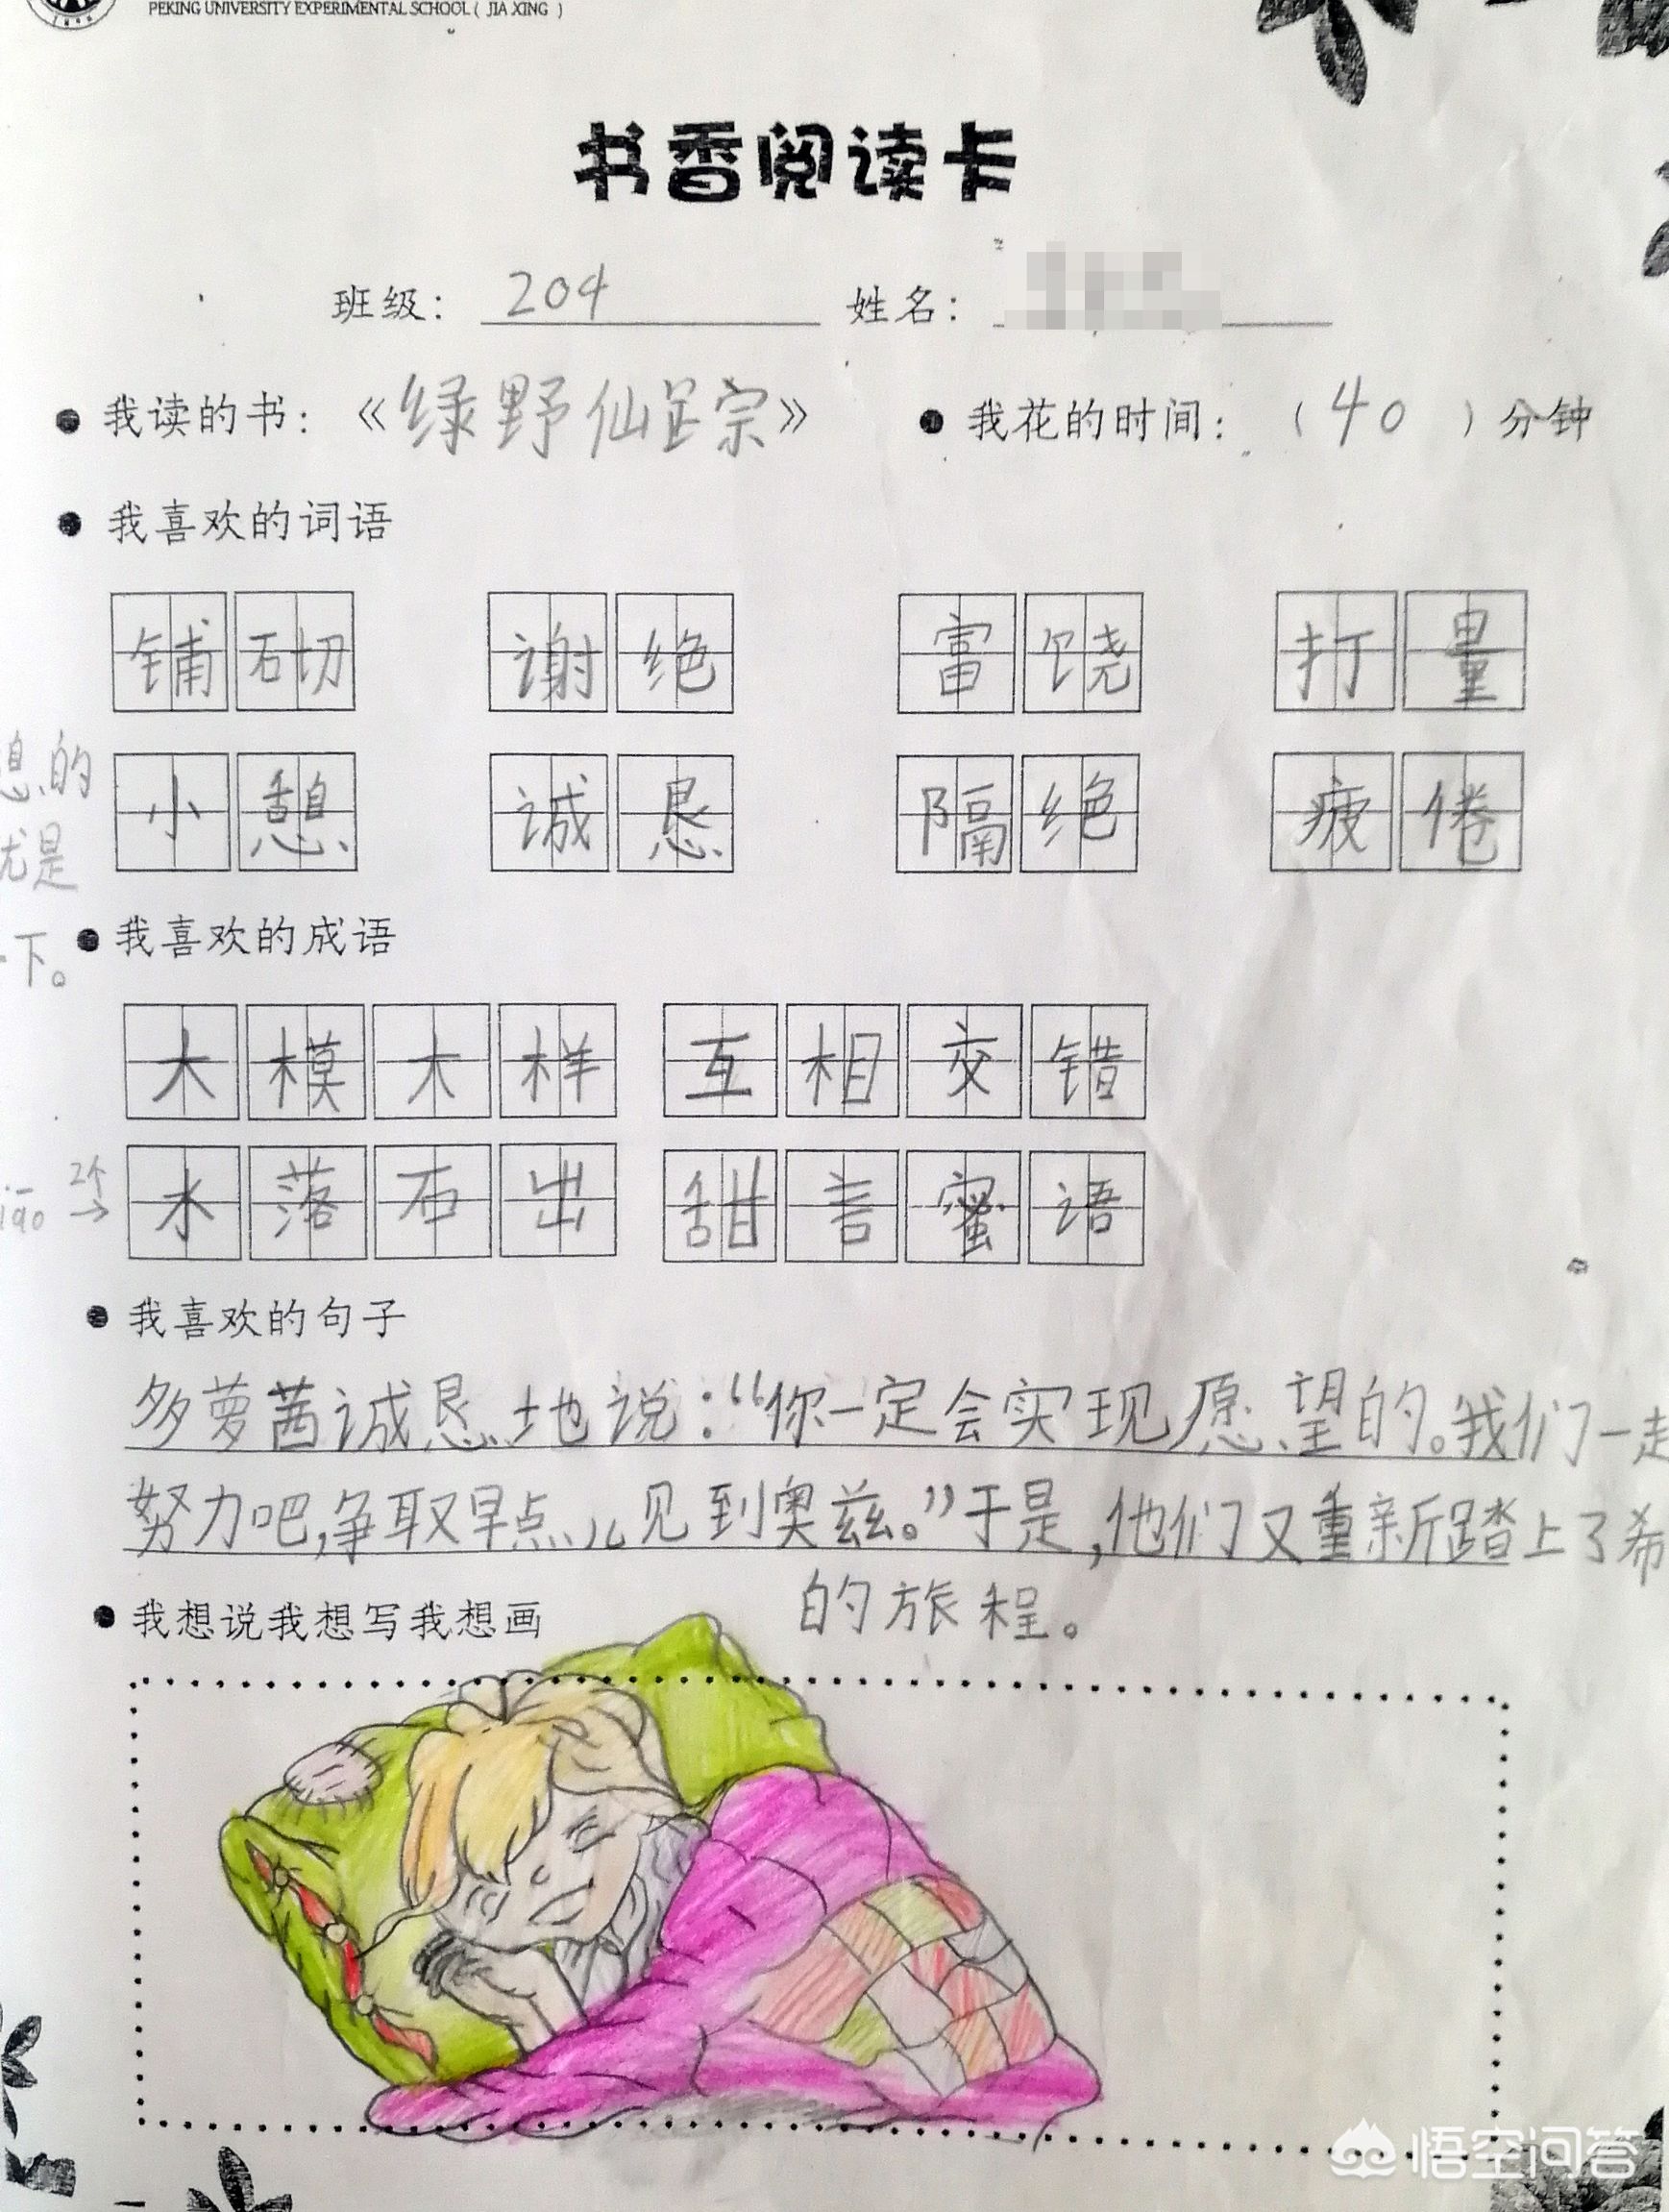 PEKING UNIVERSITY EXPERIMENTAL SCHOOL( JIA XING )
书香阅读卡
班级： 204 姓名：
● 我读的书：《绿野仙踪》 ● 我花的时间：（40）分钟
● 我喜欢的词语
铺砌 谢绝 富饶 打量
的
小憩 诚恳 隔绝 疲倦
是
下。
● 我喜欢的成语
大模大样 互相交错
2个→
水落石出 甜言蜜语
● 我喜欢的句子
多萝茜诚恳地说：“你一定会实现愿望的。我们一
努力吧，争取早点儿见到奥兹。”于是，他们又重新踏上了希
的旅程。
● 我想说我想写我想画
悟空问答